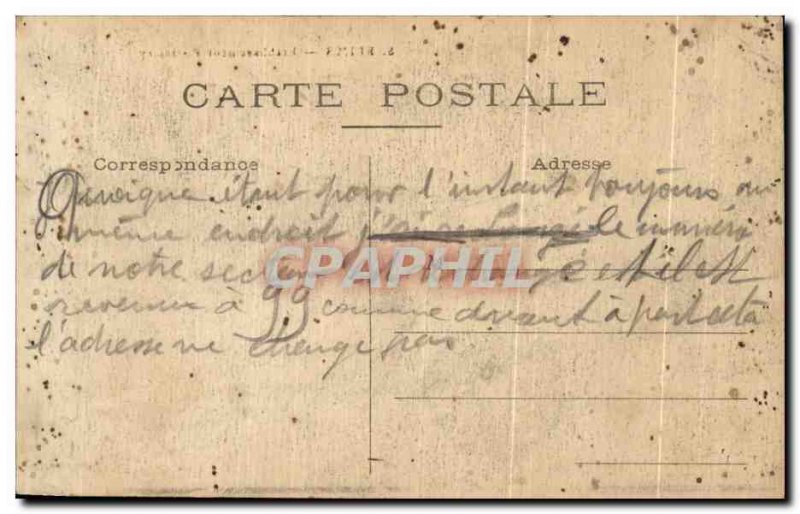 CARTE POSTALE
Correspondance
Adresse
Quoique étant pour l'instant toujours au
même endroit le numéro
de notre secteur est changé
revenu à 99 comme devant à part cela
l'adresse ne change pas
CPAPHIL